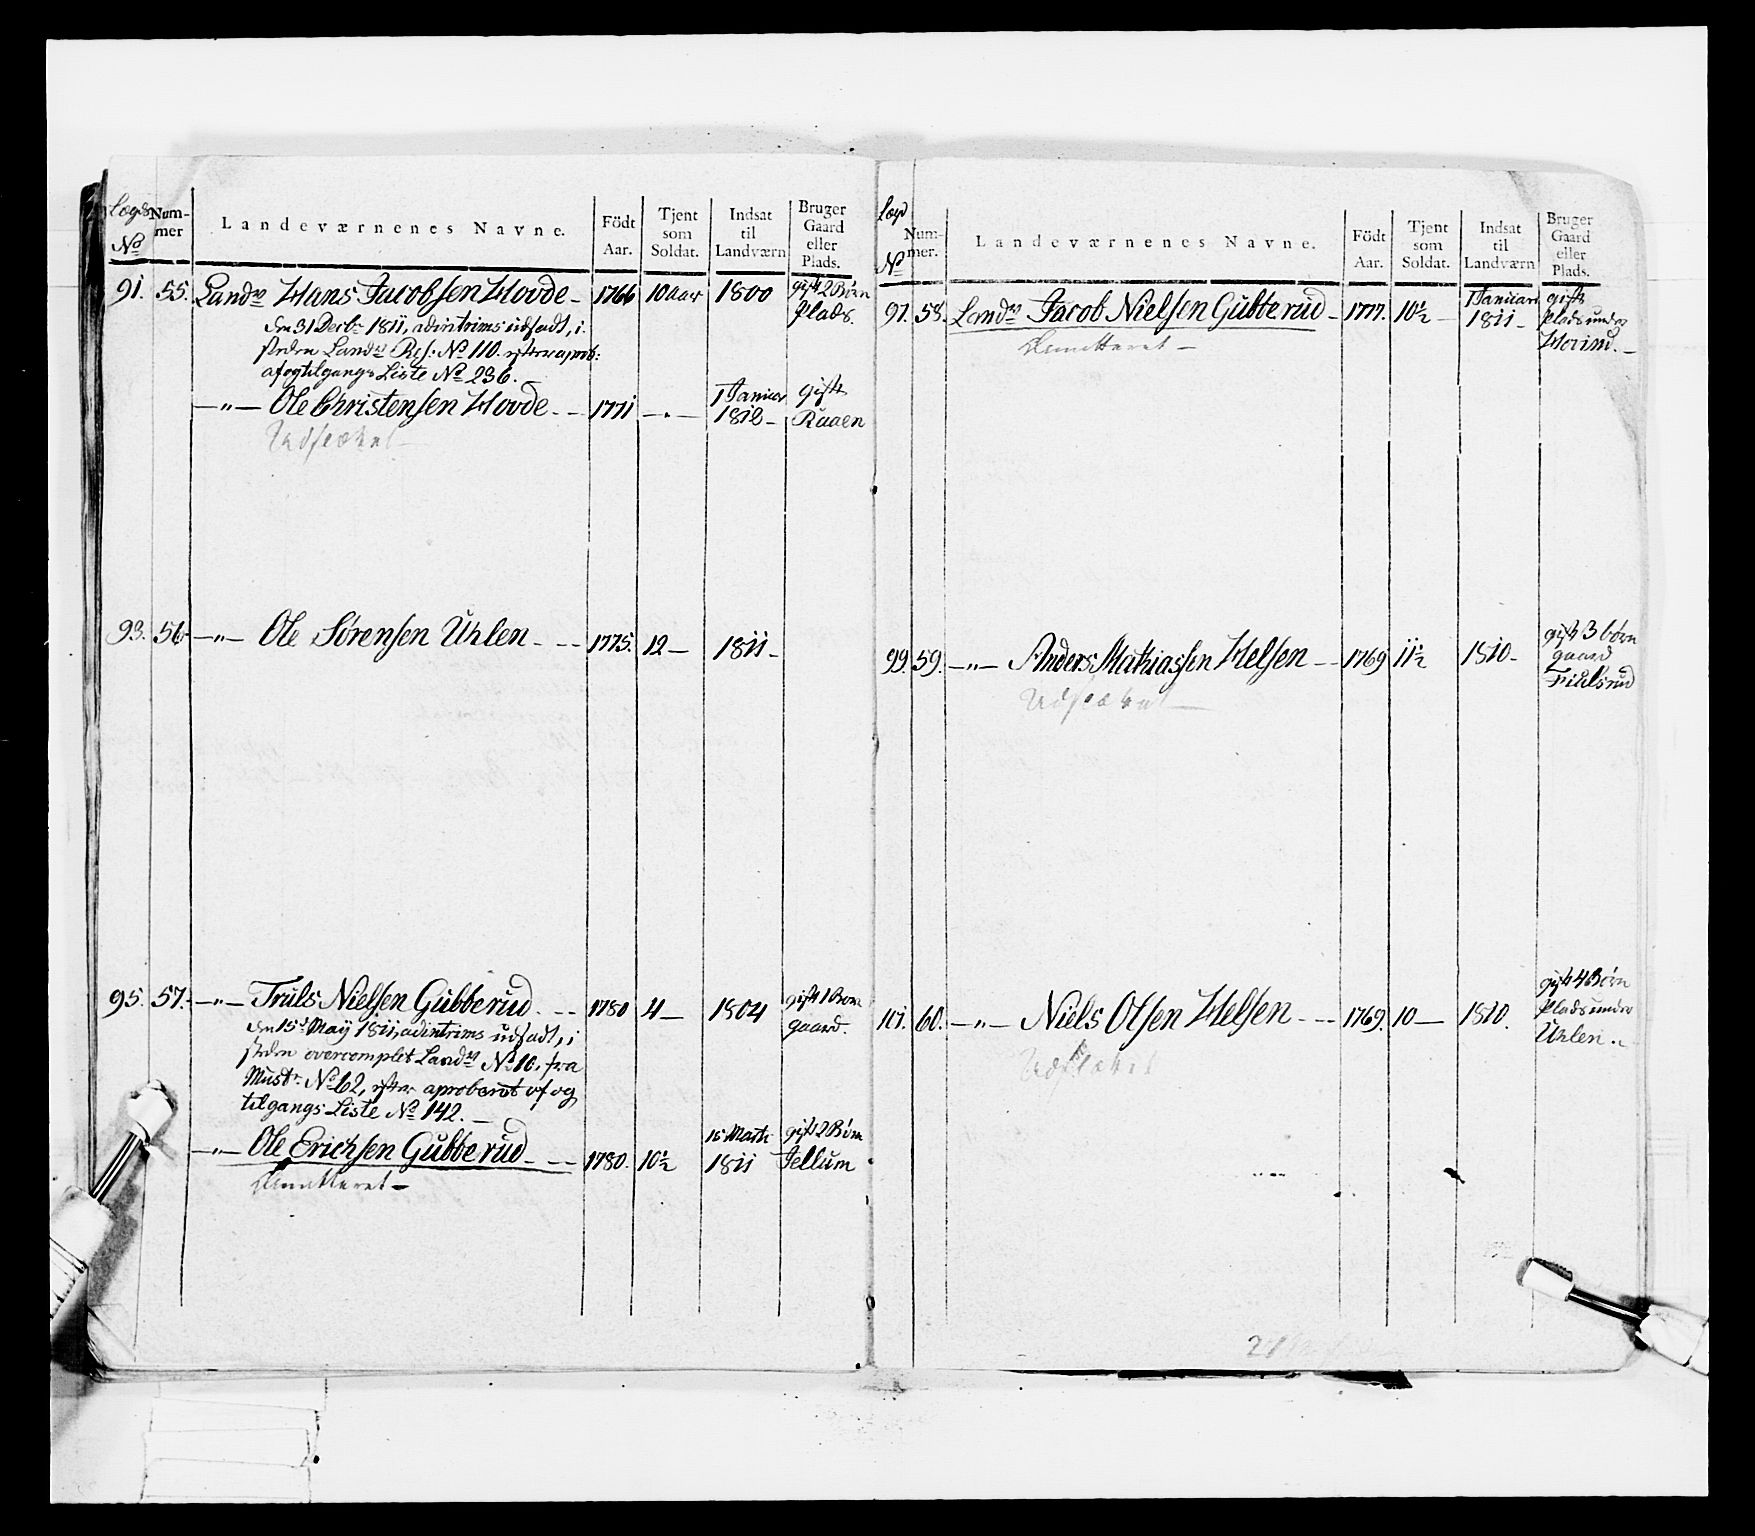 Lægds No
Num-
mer
Landeværnenes Navne.
Födt
Aar.
Tjent
som
Soldat.
Indsat
til
Landværn
Bruger
Gaard
eller
Plads.
91. 55. Landv Hans Jacobsen Hovde - 1766 10 aar 1800 gift 2 Børn
Plads.
den 31 Decbr 1811, ad intrims udsadt, i
steden Landv Res: No 110. efter aprob:
af og tilgangs Liste No 236. -
-"- Ole Christensen Hovde - - 1771 -.- 1 Januar
1812 - gift
Ruaen
93. 56. -"- Ole Sørensen Uhlen - - - 1775. 12 - 1811 -
95. 57. -"- Truls Nielsen Gubberud. - - 1780 4 - 1804 gift 1 Barn
gaard.
den 15de May 1811, ad intrims udsadt, i
steden overcomplet Landv No 10. fra
Mustr No 62, efter aproberet af og
tilgangs Liste No 142. -
-"- Ole Erichsen Gubberud - - - 1780. 10½ 15 Marti
1811 gift 2 Børn
Jellum
Demitteret -
Lægd
No
Num-
mer.
Landeværnenes Navne.
Födt
Aar.
Tjent
som
Soldat.
Indsat
til
Landværn
Bruger
Gaard
eller
Plads.
97. 58. Landv Jacob Nielsen Gubberud - 1777. 10½ - 1 Januari
1811 - gift
Plads under
Hovind. -
Demitteret -
99. 59. -"- Anders Mathiassen Helsen - - 1769 11½ 1810 - gift 3 børn
gaard
Fiulsrud
101. 60. -"- Niels Olsen Helsen - - - 1769. 10 - 1810. gift 4 Børn
Plads under
Uhlen . -